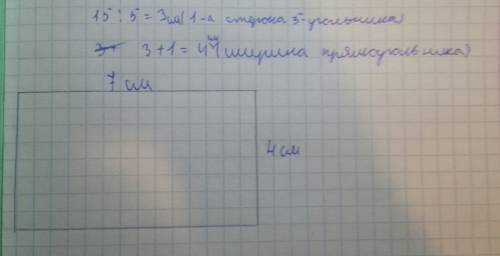 15 : 5 = 3см (1-а сторона 5-угольника)
3 + 1 = 4 см (ширина прямоугольника)
7 см
4 см